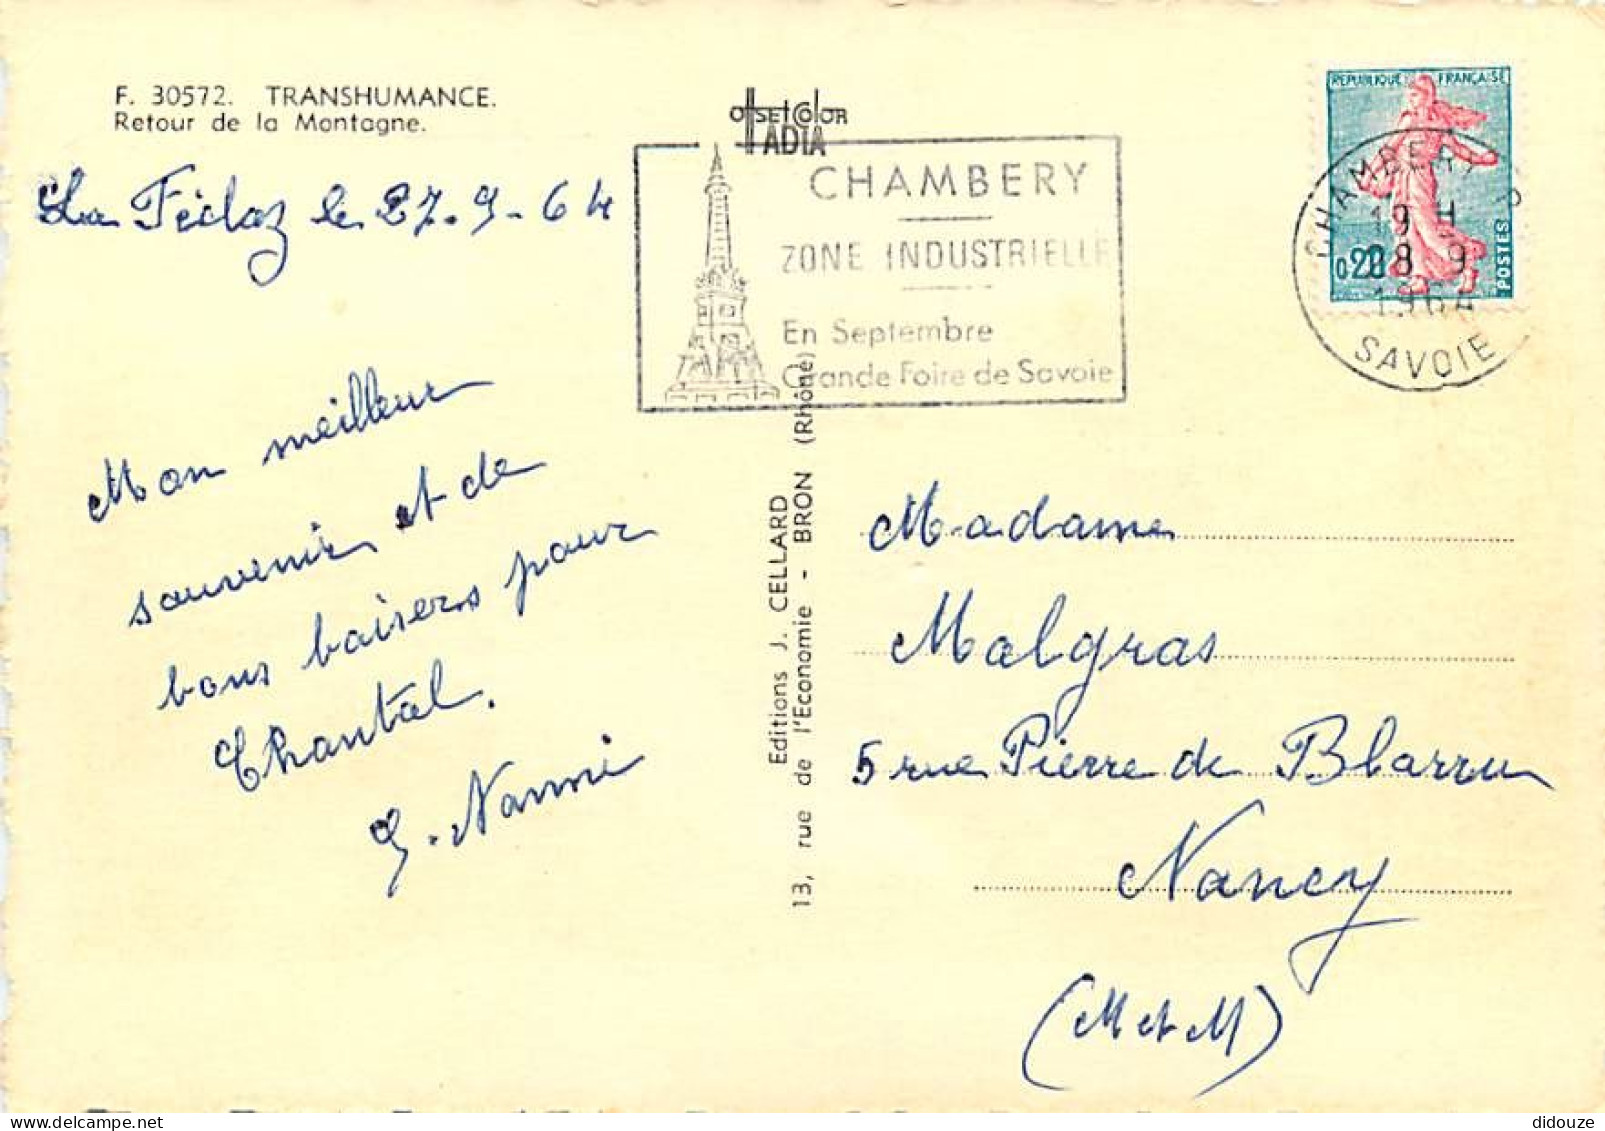 F. 30572. TRANSHUMANCE.
Retour de la Montagne.
OffsetColor
ADIA
La Féclaz le 27-9-64
CHAMBERY
ZONE INDUSTRIELLE
En Septembre
Grande Foire de Savoie
REPUBLIQUE FRANÇAISE
0,20
POSTES
CHAMBERY
19 H
28 9
1964
SAVOIE
Mon meilleur
souvenir et de
bons baisers pour
Chantal.
Editions J. CELLARD
13, rue de l'Economie - BRON (Rhône)
Madame
Malgras
5 rue Pierre de Blarru
Nancy
(M et M)
didouze